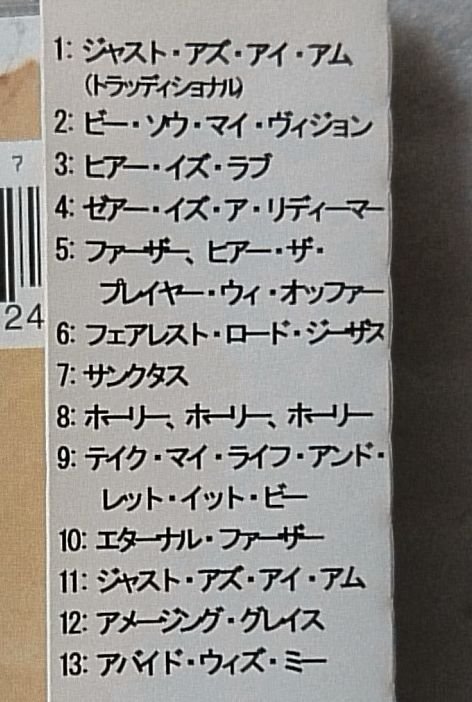 1: ジャスト・アズ・アイ・アム
(トラッディショナル)
2: ビー・ソウ・マイ・ヴィジョン
3: ヒアー・イズ・ラブ
7
4: ゼアー・イズ・ア・リディーマー
5: ファーザー、ヒアー・ザ・
プレイヤー・ウィ・オッファー
24
6: フェアレスト・ロード・ジーザス
7: サンクタス
8: ホーリー、ホーリー、ホーリー
9: テイク・マイ・ライフ・アンド・
レット・イット・ビー
10: エターナル・ファーザー
11: ジャスト・アズ・アイ・アム
12: アメージング・グレイス
13: アバイド・ウィズ・ミー